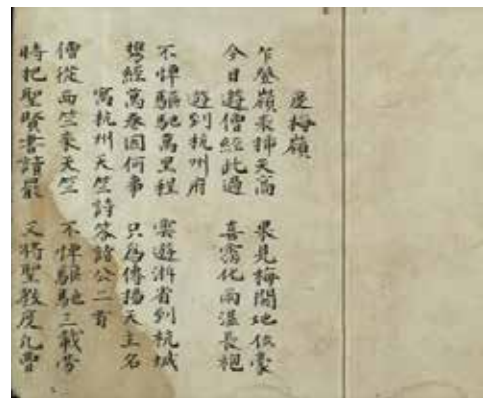 度梅嶺
乍登嶺表插天高　果見梅關地位豪
今日遊僧經此過　喜霑化雨濕長袍
遊到杭州府
不憚驅馳萬里程　雲遊浙省到杭城
携經萬卷因何事　只為傳揚天主名
寓杭州天竺詩答諸公二首
僧從西竺來天竺　不憚驅馳三載勞
時把聖賢書讀罷　又將聖教度凡曹